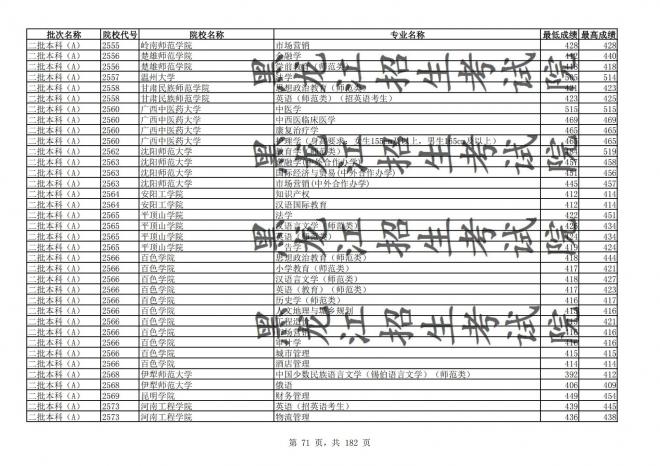 批次名称 院校代号 院校名称 专业名称 最低成绩 最高成绩
二批本科（A） 2555 岭南师范学院 市场营销 428 428
二批本科（A） 2556 楚雄师范学院 金融学 440
二批本科（A） 2556 楚雄师范学院 学前教育（师范类） 418
二批本科（A） 2557 温州大学 法学 505 514
二批本科（A） 2558 甘肃民族师范学院 思想政治教育（师范类） 421 423
二批本科（A） 2558 甘肃民族师范学院 英语（师范类）（招英语考生） 423 425
二批本科（A） 2560 广西中医药大学 中医学 515 515
二批本科（A） 2560 广西中医药大学 中西医临床医学 469 469
二批本科（A） 2560 广西中医药大学 康复治疗学 465 465
二批本科（A） 2560 广西中医药大学 护理学（身高要求：女生155cm及以上，男生165cm及以上） 465
二批本科（A） 2562 沈阳师范大学 教育学（师范类） 519
二批本科（A） 2563 沈阳师范大学 金融学(中外合作办学) 457 458
二批本科（A） 2563 沈阳师范大学 国际经济与贸易(中外合作办学) 451 456
二批本科（A） 2563 沈阳师范大学 市场营销(中外合作办学) 445 457
二批本科（A） 2564 安阳工学院 知识产权 412 414
二批本科（A） 2564 安阳工学院 汉语国际教育 412 414
二批本科（A） 2565 平顶山学院 法学 422 451
二批本科（A） 2565 平顶山学院 汉语言文学（师范类） 434
二批本科（A） 2565 平顶山学院 英语（师范类） 434
二批本科（A） 2565 平顶山学院 广告学 419 424
二批本科（A） 2566 百色学院 思想政治教育（师范类） 418 444
二批本科（A） 2566 百色学院 小学教育（师范类） 417 421
二批本科（A） 2566 百色学院 汉语言文学（师范类） 418 427
二批本科（A） 2566 百色学院 英语（教育）（师范类） 417 423
二批本科（A） 2566 百色学院 历史学（师范类） 416 417
二批本科（A） 2566 百色学院 人文地理与城乡规划 416
二批本科（A） 2566 百色学院 421
二批本科（A） 2566 百色学院 市场营销 416
二批本科（A） 2566 百色学院 审计学 416
二批本科（A） 2566 百色学院 城市管理 414 415
二批本科（A） 2566 百色学院 酒店管理 414 414
二批本科（A） 2568 伊犁师范大学 中国少数民族语言文学（锡伯语言文学）（师范类） 392 412
二批本科（A） 2568 伊犁师范大学 俄语 406 409
二批本科（A） 2569 昆明学院 财务管理 449 454
二批本科（A） 2573 河南工程学院 英语（招英语考生） 439 445
二批本科（A） 2573 河南工程学院 物流管理 436 438
黑龙江招生考试院
黑龙江招生考试院
黑龙江招生考试院
第 71 页，共 182 页